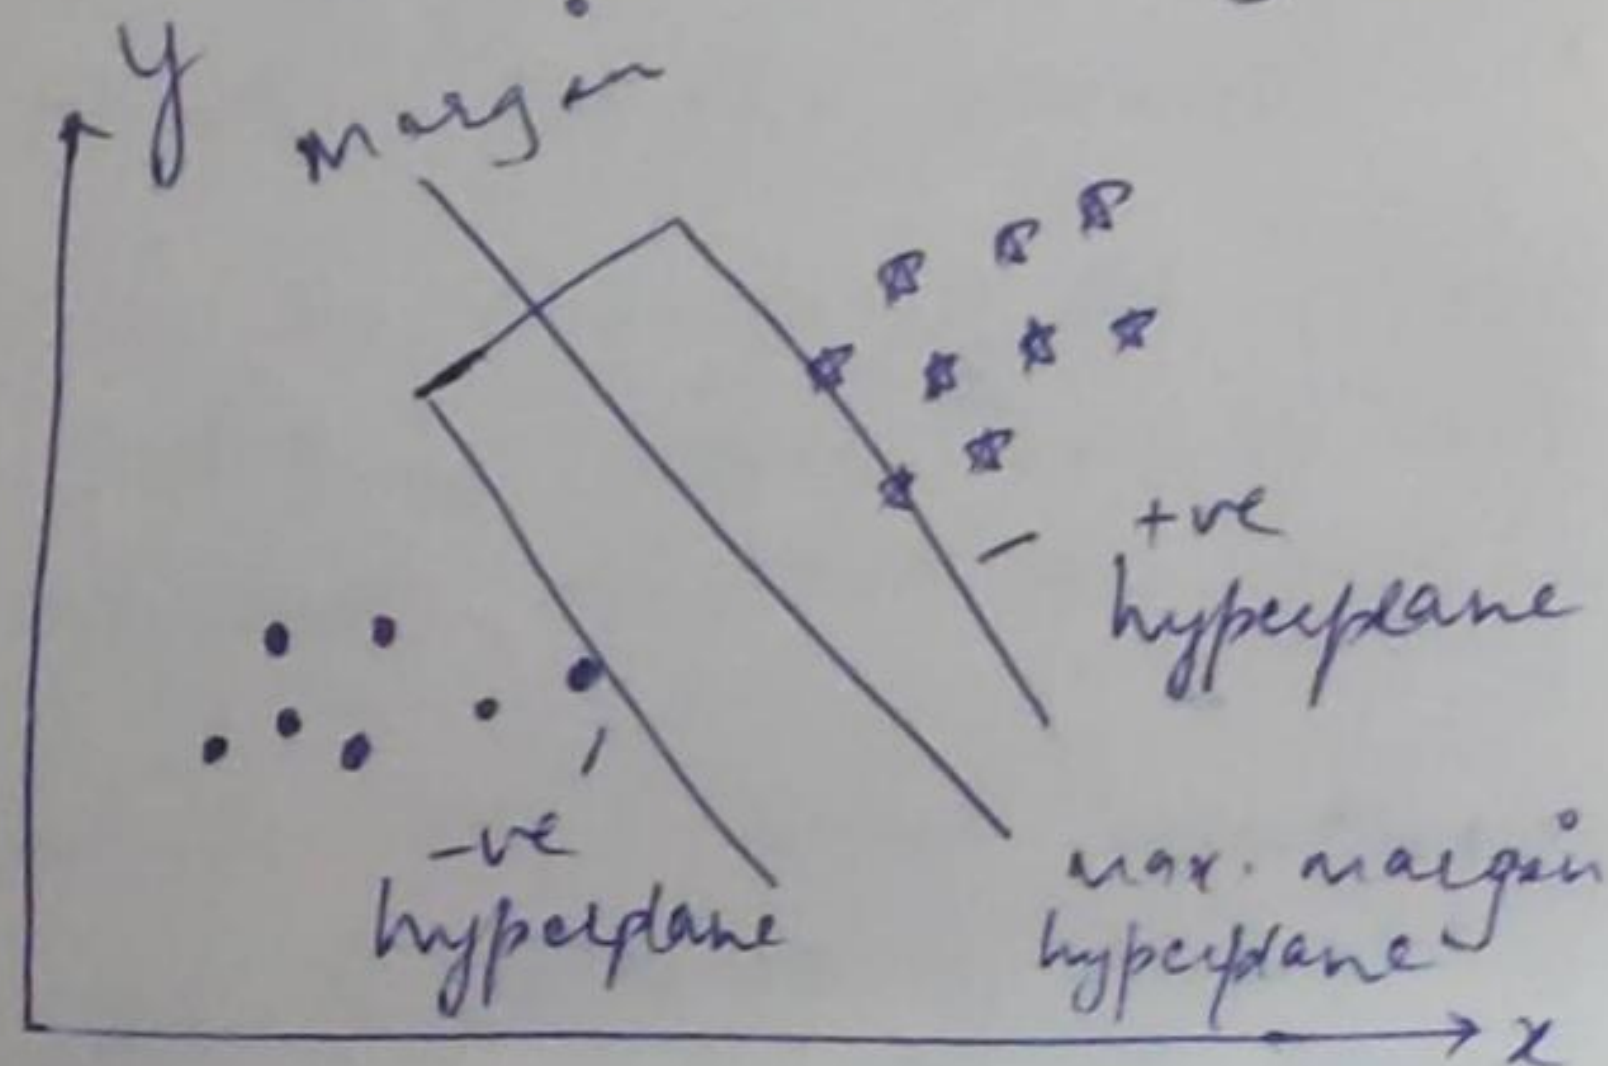 y
Margin
+ve
hyperplane
-ve
hyperplane
max. margin
hyperplane
x